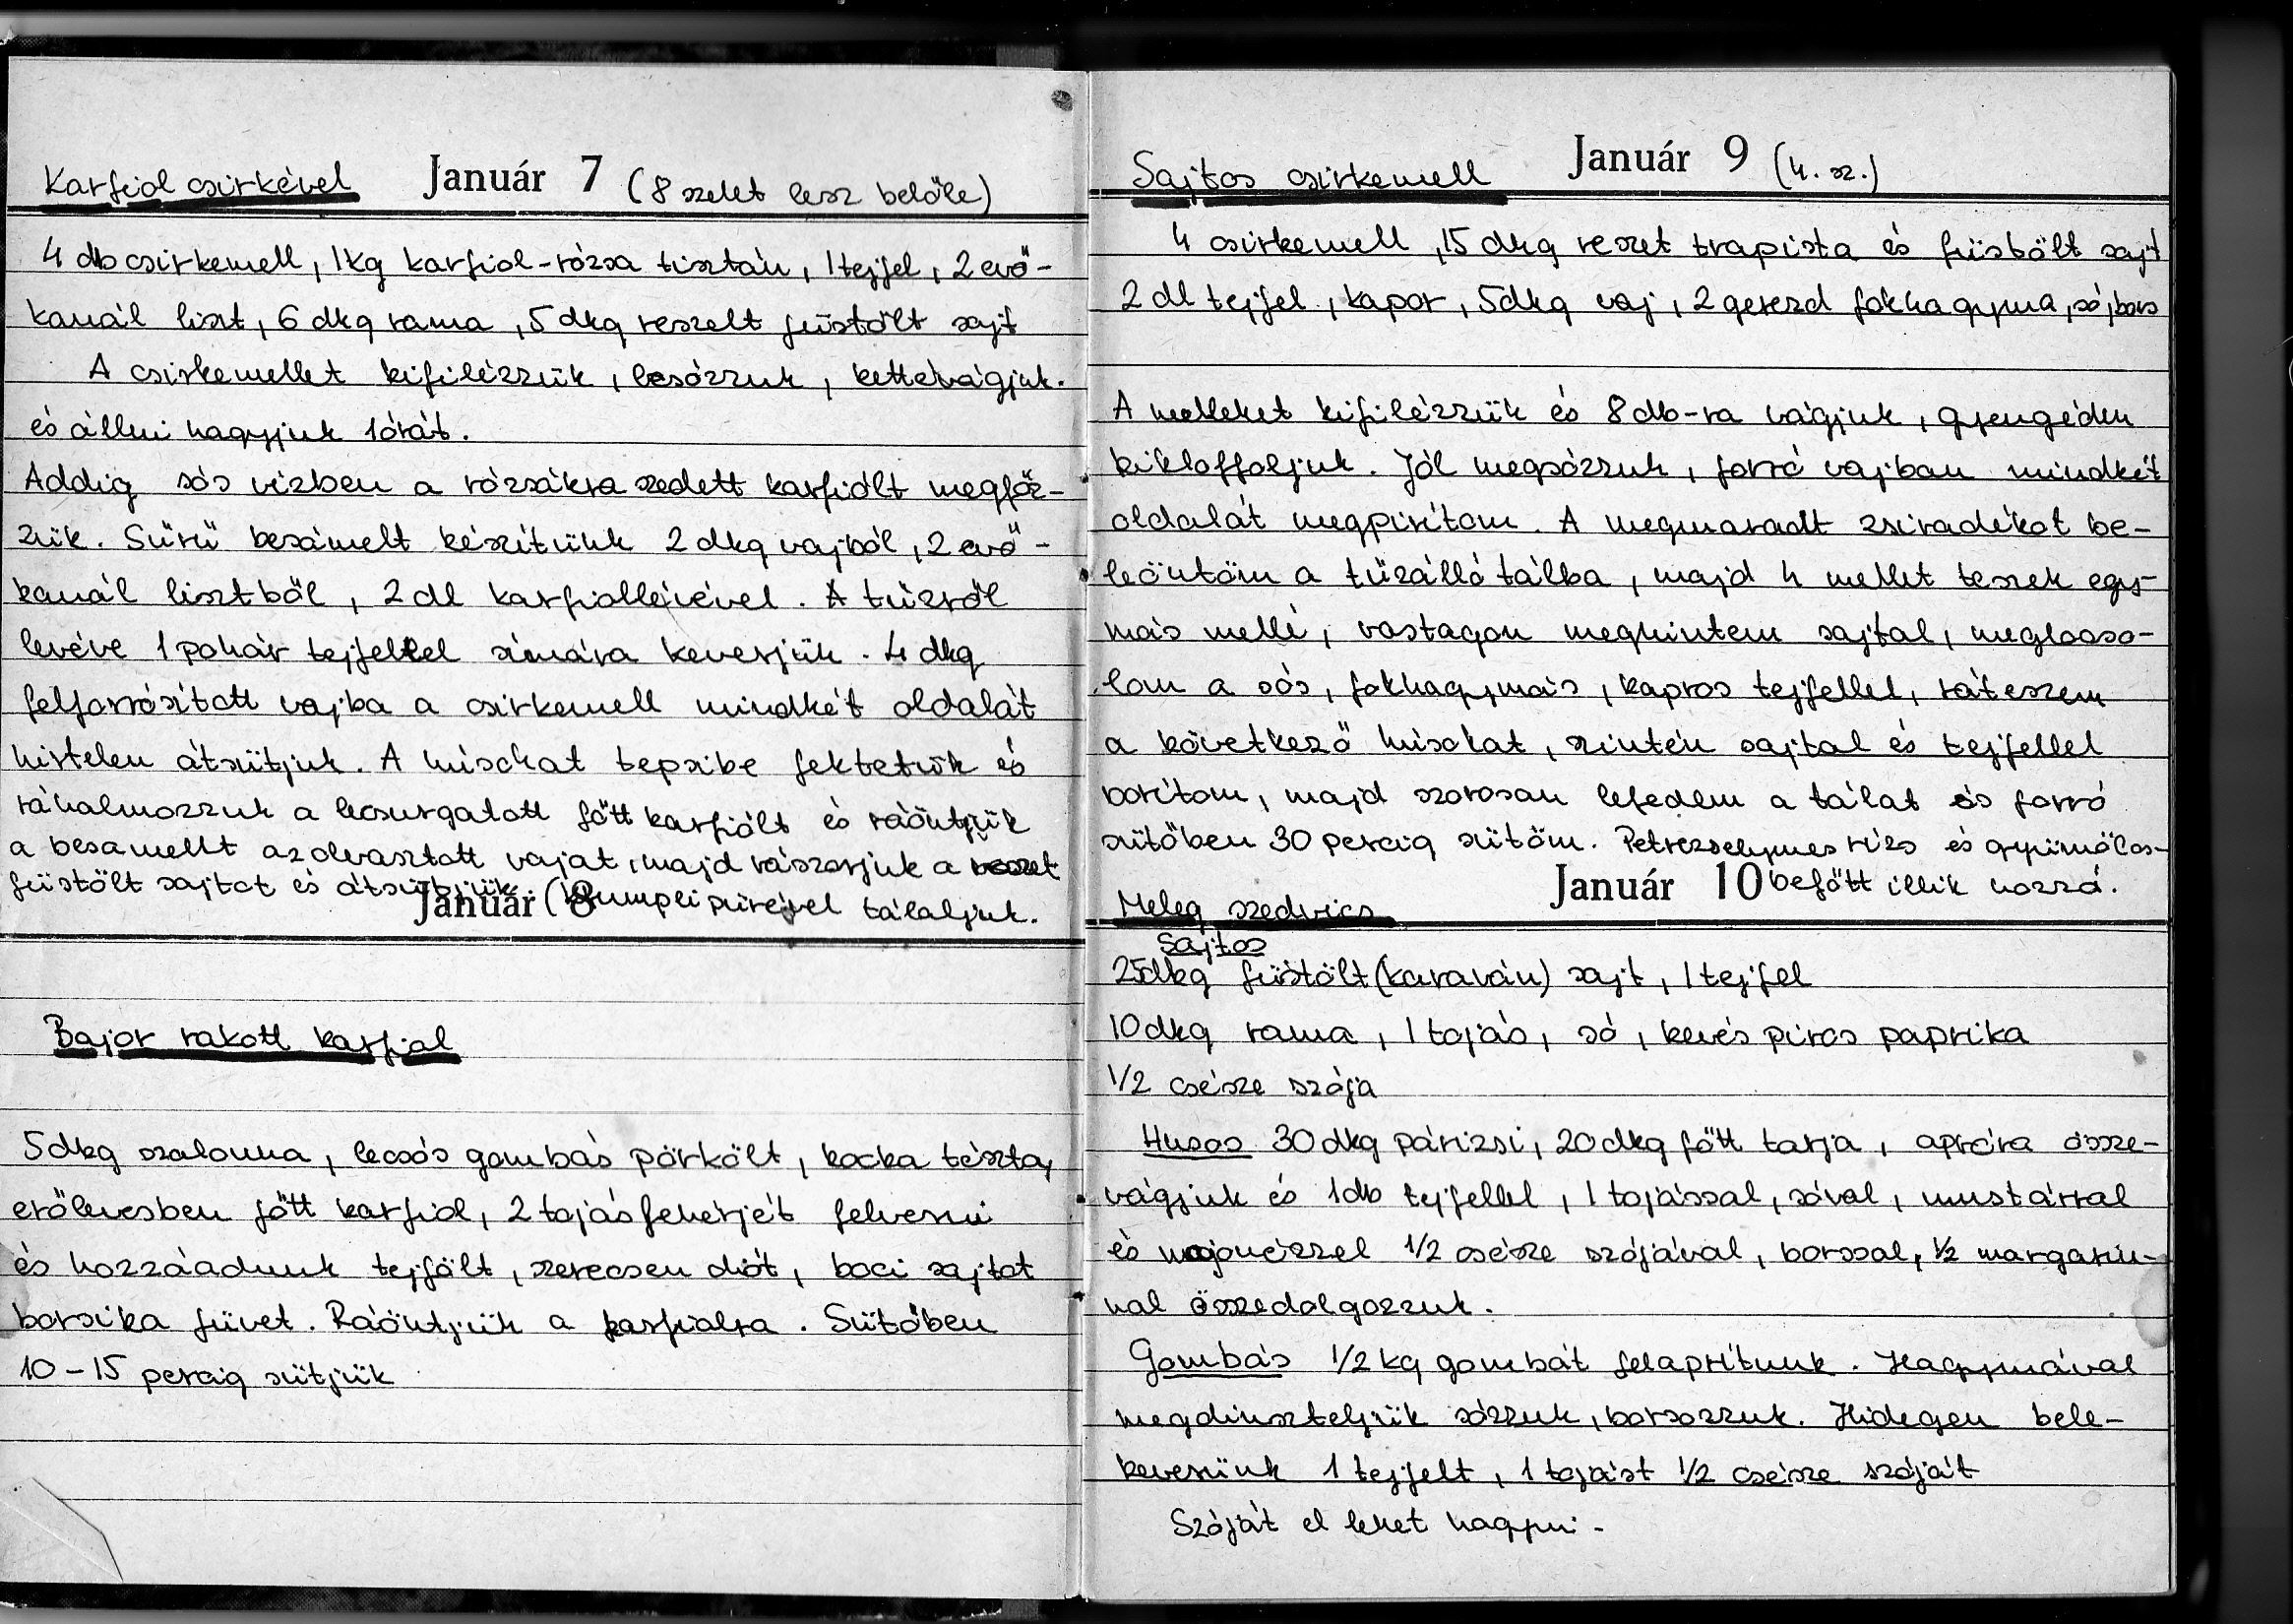 Karfiol csirkével Január 7 (8 szelet lesz belőle)
4 db csirkemell, 1kg karfiol-rózsa tisztán, 1 tejfel, 2 evő-
kanál liszt, 6 dkg rama, 5 dkg reszelt füstölt sajt
A csirkemellet kifilézzük, besózzuk, kettévágjuk.
és állni hagyjuk 1 órát.
Addig sós vízben a rózsákra szedett karfiólt megfőz-
zük. Sűrű besámelt készítünk 2 dkg vajból, 2 evő-
kanál lisztből, 2 dl karfiollével. A tűzről
levéve 1 pohár tejfellel símára keverjük. 4 dkg
felforrósított vajba a csirkemell mindkét oldalát
hirtelen átsütjük. A húsokat tepsibe fektetük és
ráhalmozzuk a lecsurgatott főtt karfiólt és ráöntjük
a besamellt az olvasztott vajat, majd rászorjuk a reszet
füstölt sajtot és átsütjük. Krumplipürével tálaljuk.
Január 8
Bajor rakott karfiol
5dkg szalonna, lecsós gombás pörkölt, kocka tészta,
erőlevesben főtt karfiol, 2 tojásfehérjét felverni
és hozzáadunk tejfölt, szerecsen diót, boci sajtot
borsika füvet. Ráöntjük a karfiolra. Sütőben
10-15 percig sütjük
Sajtos csirkemell Január 9 (4. sz.)
4 csirkemell, 15 dkg reszet trapista és füstölt sajt
2 dl tejfel, kapor, 5dkg vaj, 2 gerezd fokhagyma, só, bors
A melleket kifilézzük és 8 db-ra vágjuk, gyengéden
kikloffoljuk. Jól megsózzuk, forró vajban mindkét
oldalát megpirítom. A megmaradt zsiradékot be-
leöntöm a tűzálló tálba, majd 4 mellet teszek egy-
más mellé, vastagon meghintem sajtal, meglocso-
lom a sós, fokhagymás, kapros tejfellel, ráteszem
a következő húsokat, szintén sajtal és tejfellel
borítom, majd szorosan lefedem a tálat és forró
sütőben 30 percig sütöm. Petrezselymes rízs és gyümölcs-
befőtt illik hozzá.
Január 10
Meleg szedvics
Sajtos
25dkg füstölt (karaván) sajt, 1 tejfel
10dkg rama, 1 tojás, só, kevés piros paprika
1/2 csésze szója
Husos 30dkg párizsi, 20dkg főtt tarja, apróra össze-
vágjuk és 1db tejfellel, 1 tojással, sóval, mustárral
és majonézzel 1/2 csésze szójával, borssal, 1/2 margarin-
nal összedolgozzuk.
Gombás 1/2 kg gombát felaprítunk. Hagymával
megdinszteljük sózzuk, borsozzuk. Hidegen bele-
keverünk 1 tejfelt, 1 tojást 1/2 csésze szóját
Szóját el lehet hagyni.